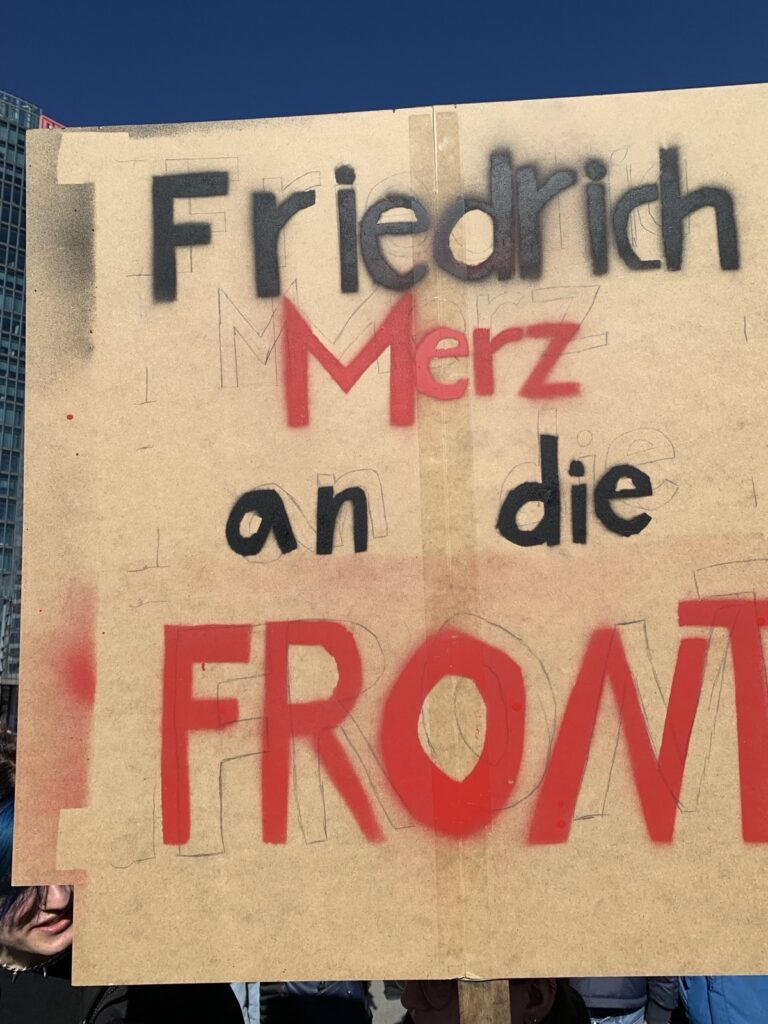 Friedrich
Merz
an die
FRONT